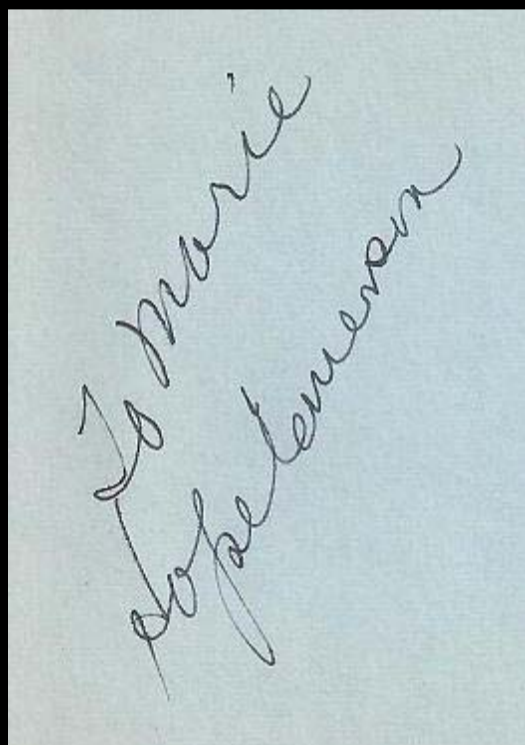 To Marie
Hope Emerson